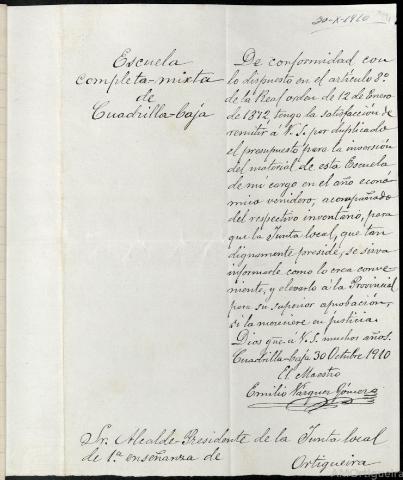 30-X-1910
Escuela
completa-mixta
de
Cuadrilla-baja
De conformidad con
lo dispuesto en el artículo 8º
de la Real orden de 12 de Enero
de 1872, tengo la satisfacción de
remitir á V.S. por duplicado
el presupuesto para la inversión
del material de esta Escuela
de mi cargo en el año econó
mico venidero, acompañado
del respectivo inventario, para
que la Junta local, que tan
dignamente preside, se sirva
informarle como lo crea conve-
niente, y elevarlo á la Provincial
para su superior aprobación,
si la mereciere en justicia.
Dios gue á V.S. muchos años.
Cuadrilla-baja 30 Octubre 1910
El Maestro
Emilio Vázquez Gómez
Sr. Alcalde-Presidente de la Junta local
de 1ª enseñanza de Ortigueira